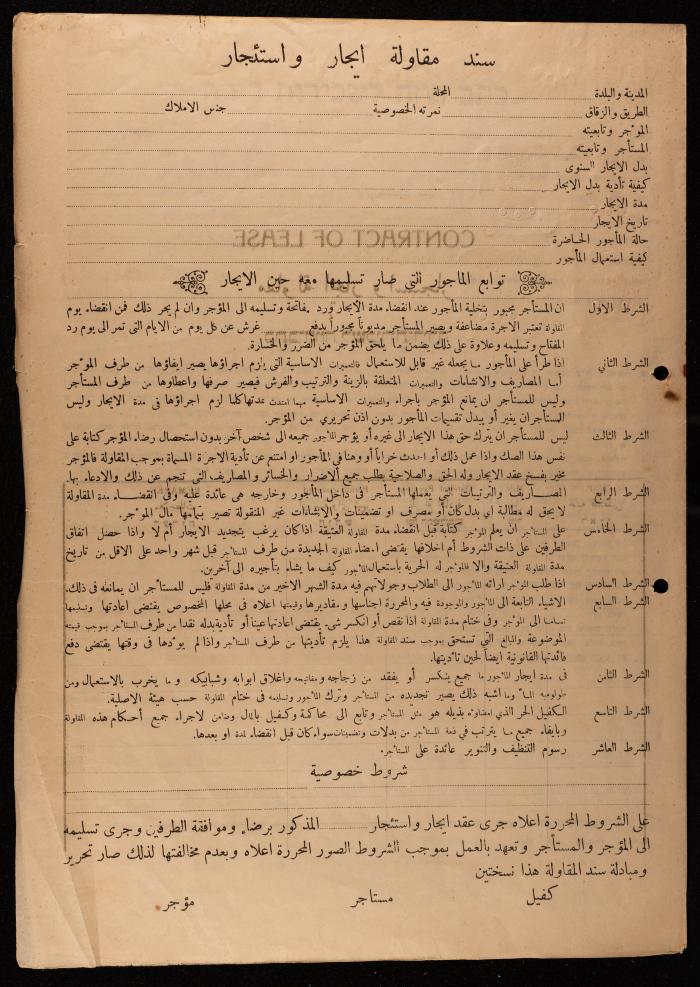 سند مقاولة ايجار واستئجار
المدينة والبلدة المحلة
الطريق والزقاق نمرته الخصوصية جنس الاملاك
المؤجر وتابعيته
المستأجر وتابعيته
بدل الايجار السنوى
كيفية تأدية بدل الايجار
مدة الايجار
تاريخ الايجار
حالة المأجور الحاضرة
CONTRACT OF LEASE
كيفية استعمال المأجور
توابع المأجور التى صار تسليمها معه حين الايجار
الشرط الاول ان المستأجر مجبور بتخلية المأجور عند انقضاء مدة الايجار ورد مفاتحة وتسليمه الى المؤجر وان لم يجر ذلك فمن انقضاء يوم
المقاولة تعتبر الاجرة مضاعفة ويصير المستأجر مديوناً مجبوراً بدفع غرش عن كل يوم من الايام التى تمر الى يوم رد
المفتاح وتسليمه وعلاوة على ذلك يضمن ما يلحق المؤجر من الضرر والخسارة.
الشرط الثانى اذا طرأ على المأجور ما يجعله غير قابل للاستعمال فالتعميرات الاساسية التى يلزم اجراؤها يصير ايفاؤها من طرف المؤجر
أما المصاريف والانشاءات والتعميرات المتعلقة بالزينة والترتيب والفرش فيصير صرفها واعطاؤها من طرف المستأجر
وليس للمستأجر ان يمانع المؤجر باجراء والتعميرات الاساسية مهما امتدت مدتها كلما لزم اجراؤها فى مدة الايجار وليس
المستأجر ان يغير أو يبدل تقسيمات المأجور بدون اذن تحريرى من المؤجر.
الشرط الثالث ليس للمستأجر ان يترك حق هذا الايجار الى غيره أو يؤجر المأجور جميعه الى شخص آخر بدون استحصال رضاء المؤجر كتابة على
نفس هذا الصك واذا عمل ذلك أو احدث خراباً أو وهناً فى المأجور او امتنع عن تأدية الاجرة المسماة بموجب المقاولة فالمؤجر
مخير بفسخ عقد الايجار وله الحق والصلاحية بطلب جميع الاضرار والخسائر والمصاريف التى تنجم عن ذلك والادعاء بها.
الشرط الرابع المصاريف والترتيبات التى يعملها المستأجر فى داخل المأجور وخارجه هى عائدة عليه وفى انقضاء مدة المقاولة
لا يحق له مطالبة اى بدل كان أو مصرف او تضمينات والانشاءات غير المنقولة تصير بتمامها مال المؤجر.
الشرط الخامس على المستأجر ان يعلم المؤجر كتابة قبل انقضاء مدة المقاولة العتيقة اذا كان يرغب بتجديد الايجار أم لا واذا حصل اتفاق
الطرفين على ذات الشروط أم اخلافها يقتضى امضاء المقاولة الجديدة من طرف المستأجر قبل شهر واحد على الاقل من تاريخ
مدة المقاولة العتيقة والا فالمؤجر له الحرية باستعمال المأجور كيف ما يشاء بتأجيره الى آخرين.
الشرط السادس اذا طلب المؤجر ارائة المأجور الى الطلاب وجولاتهم فيه مدة الشهر الاخير من مدة المقاولة فليس للمستأجر ان يمانعه فى ذلك.
الشرط السابع الاشياء التابعة الى المأجور والموجودة فيه والمحررة اجناسها ومقاديرها وقيمتها اعلاه فى محلها المخصوص يقتضى اعادتها وتسليمها
تماما الى المؤجر وفى ختام مدة المقاولة اذا نقص أو انكسر شى يقتضى اعادتها عيناً أو تأدية بدله نقداً من طرف المستأجر بموجب قيمته
الموضوعة والمبالغ التى تستحق بموجب سند المقاولة هذا يلزم تأديتها من طرف المستأجر واذا لم يوء‌دها فى وقتها يقتضى دفع
فائدتها القانونية ايضاً لحين تأديتها.
الشرط الثامن فى مدة ايجار المأجور ما جميع ينكسر أو يفقد من زجاجه ومفاتيحه واغلاق ابوابه وشبابيكه و ما يخرب بالاستعمال ومن
الماء وما اشبه ذلك يصير تجديده من المستأجر وترك المأجور وتسليمه فى ختام المقاولة حسب هيئة الاصلية.
الشرط التاسع الكفيل الحر الذى امضاؤه بذيله هو مثل المستأجر وتابع الى محاكمة وكفيل بالمال وضامن لاجراء جميع أحكام هذه المقاولة
وبايفاء جميع ما يترتب فى ذمة المستأجر من بدلات وتضمينات سواء كان قبل انقضاء المدة او بعدها.
الشرط العاشر رسوم التنظيف والتنوير عائدة على المستأجر.
شروط خصوصية
على الشروط المحررة اعلاه جرى عقد ايجار واستئجار المذكور برضاء وموافقة الطرفين وجرى تسليمه
الى المؤجر والمستأجر وتعهد بالعمل بموجب الشروط الصور المحررة اعلاه وبعدم مخالفتها لذلك صار تحرير
ومبادلة سند المقاولة هذا نسختين
كفيل مستاجر مؤجر